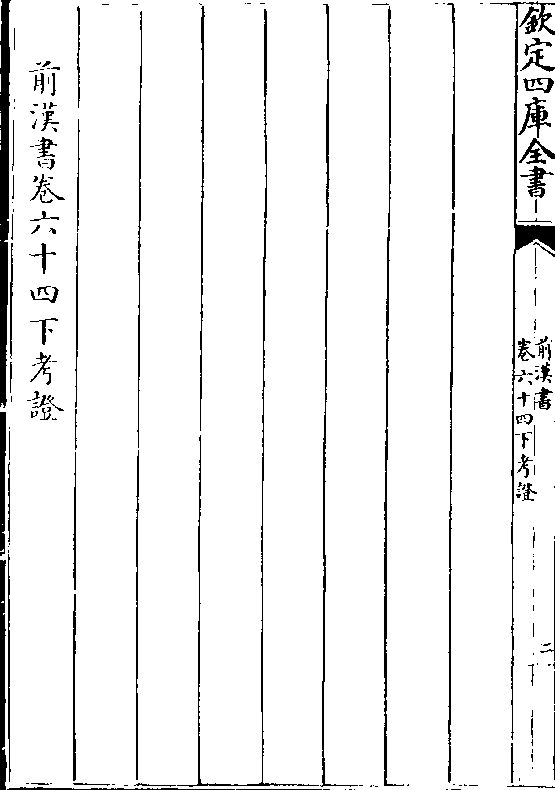 欽定四庫全書
前漢書
卷六十四下考證
二
前漢書卷六十四下考證